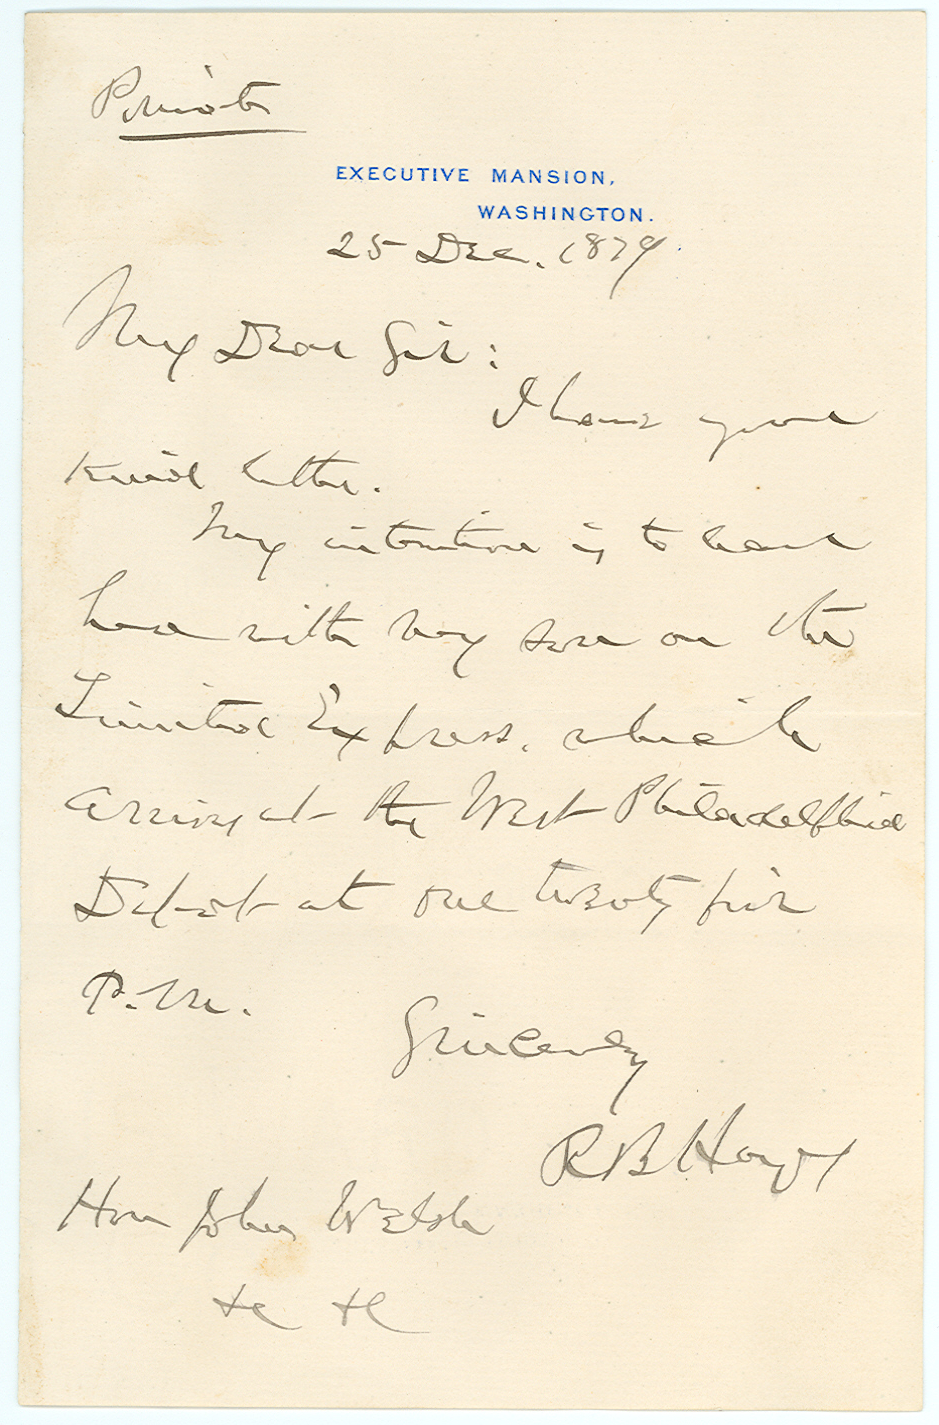 Private
EXECUTIVE MANSION,
WASHINGTON.
25 Dec. 1879.
My Dear Sir:
I have your
kind letter.
My intention is to leave
here with my son on the
Limited Express, which
arrives at the West Philadelphia
Depot at one twenty five
P.M.
Sincerely
R B Hayes
Hon John Welsh
&c &c